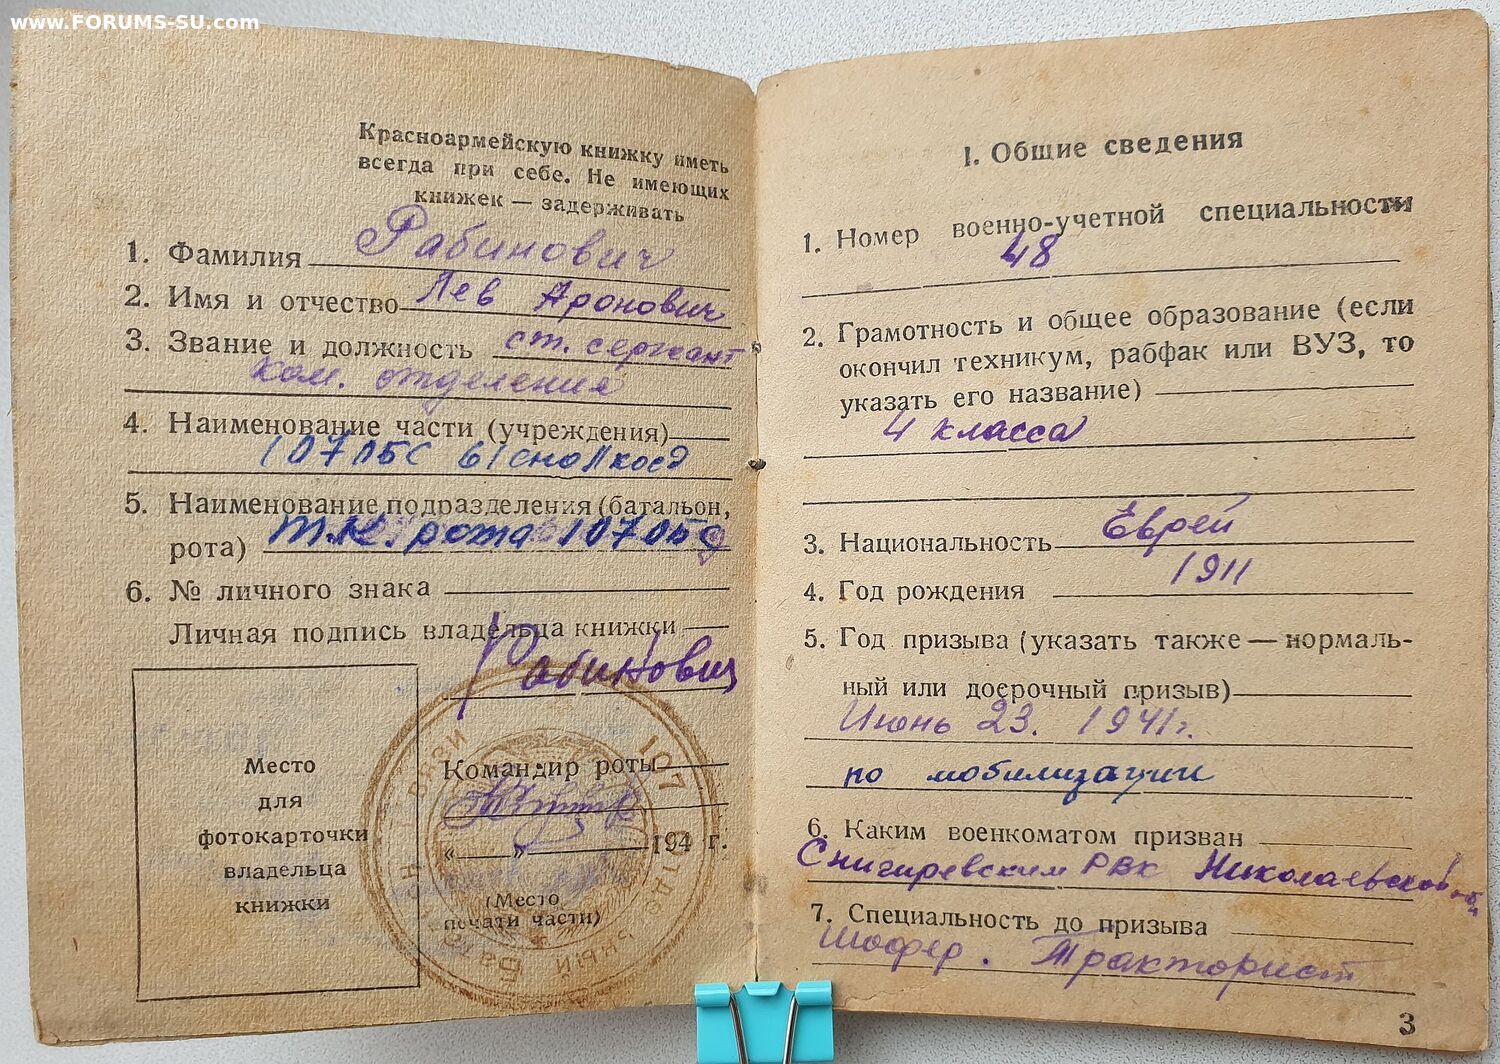 www.FORUMS-SU.com
Красноармейскую книжку иметь
всегда при себе. Не имеющих
книжек — задерживать
1. Фамилия Рабинович
2. Имя и отчество Лев Аронович
3. Звание и должность ст. сержант
ком. отделения
4. Наименование части (учреждения)
107
5. Наименование подразделения (батальон,
рота) рота 107
6. № личного знака
Личная подпись владельца книжки
Рабинович
Место
для
фотокарточки
владельца
книжки
Командир роты
« » 194 г.
(Место
печати части)
107 Отдельный Бат связи
I. Общие сведения
1. Номер военно-учетной специальности
48
2. Грамотность и общее образование (если
окончил техникум, рабфак или ВУЗ, то
указать его название)
4 класса
3. Национальность Еврей
4. Год рождения 1911
5. Год призыва (указать также — нормаль-
ный или досрочный призыв)
Июнь 23. 1941г.
по мобилизации
6. Каким военкоматом призван
Снигиревским РВК Николаевской обл
7. Специальность до призыва
Шофер. Тракторист
3